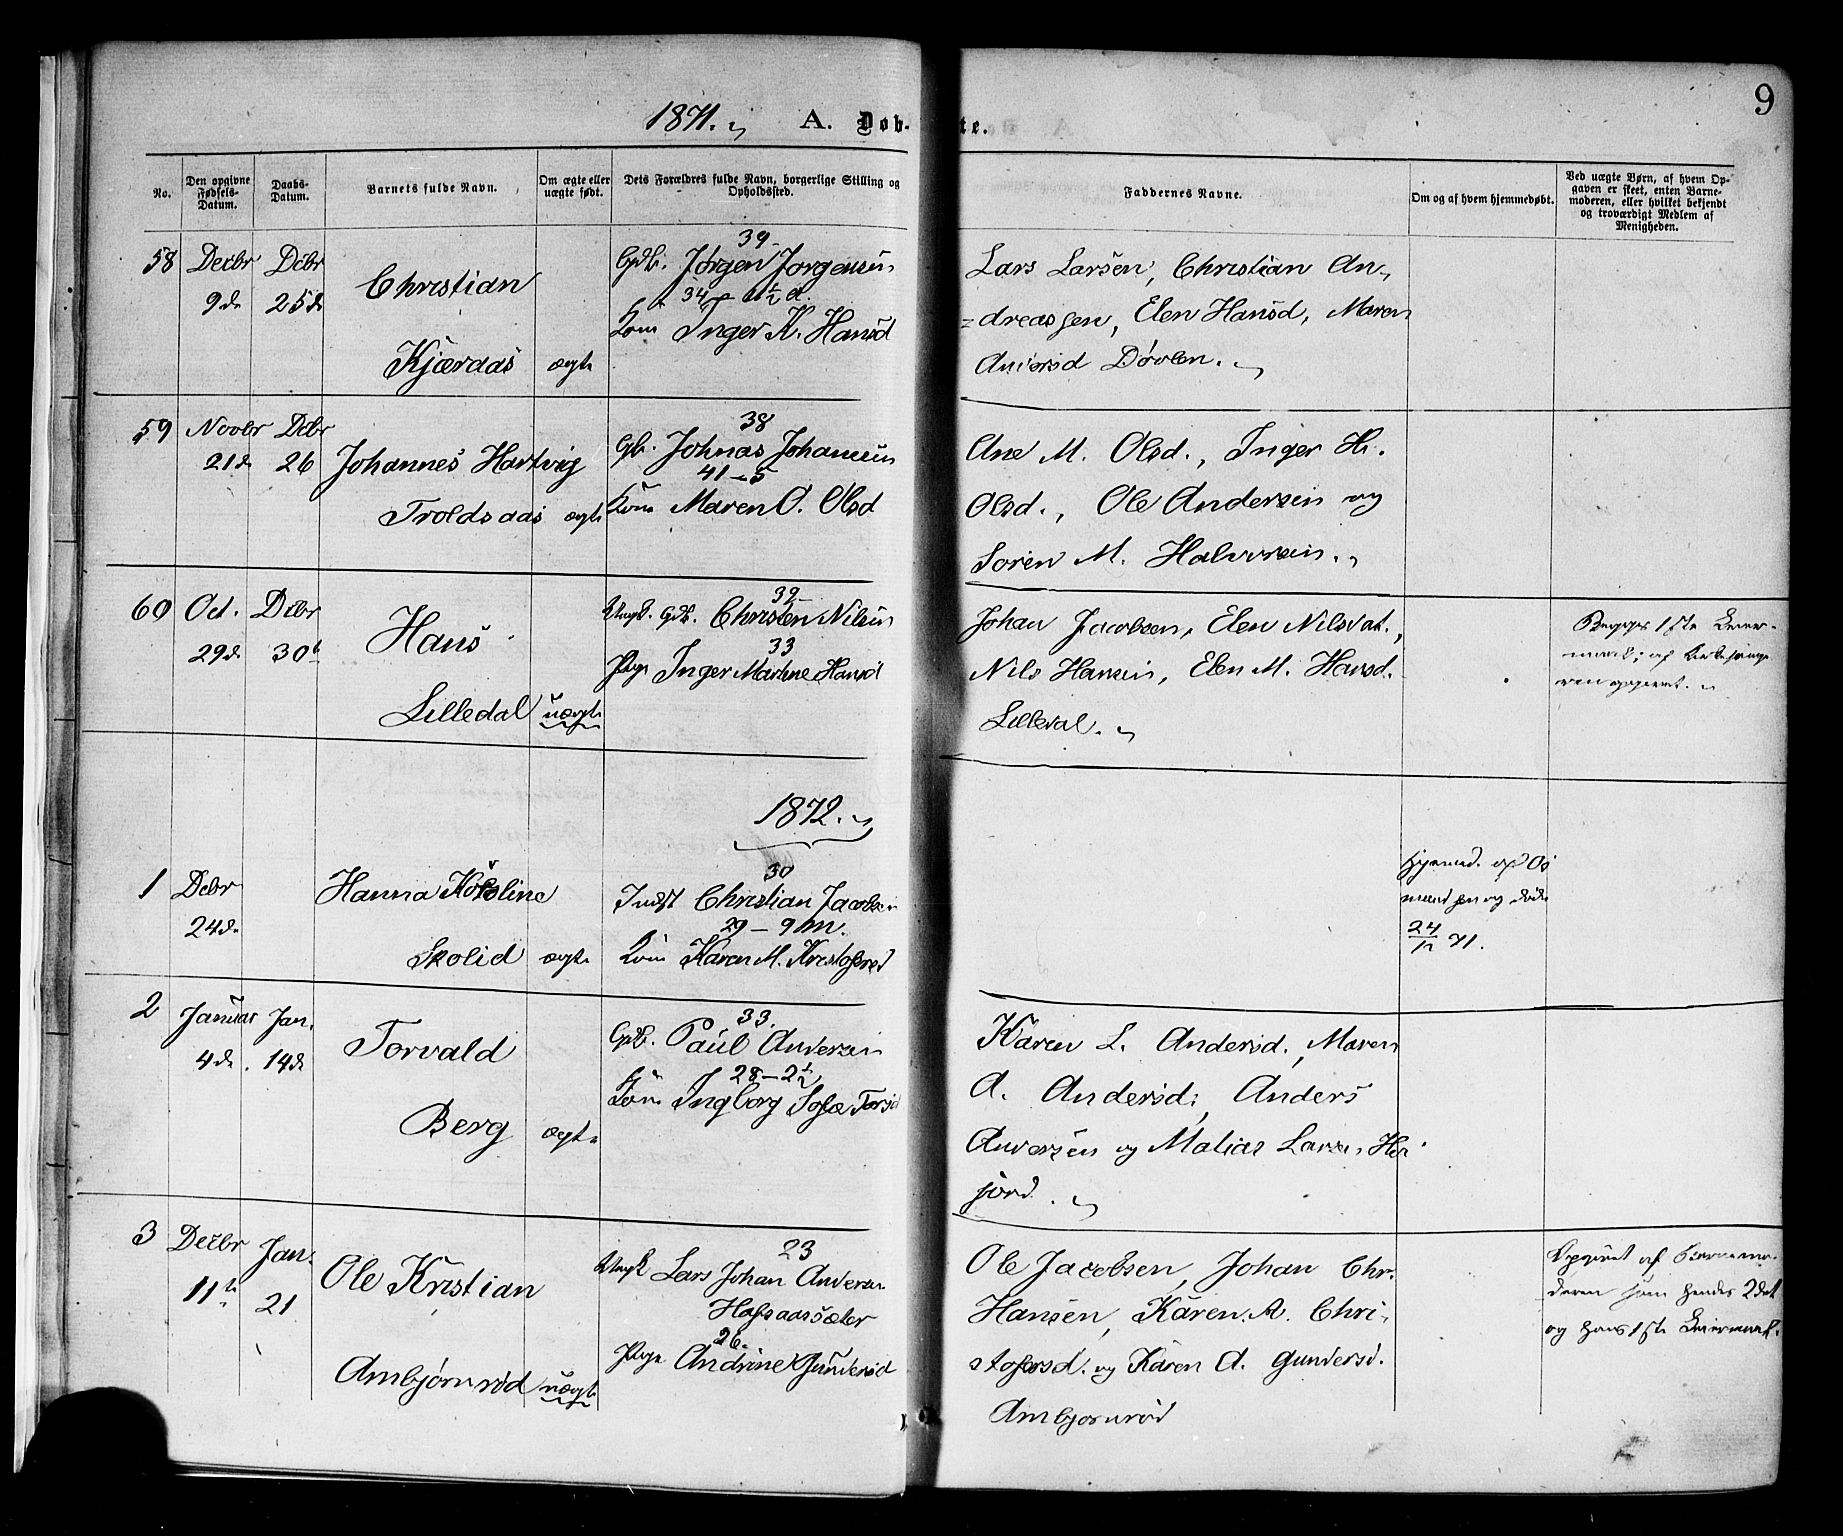 9
1871. A. Døb- te.
No.
Den opgivne Fødsels-Datum.
Daabs-Datum.
Barnets fulde Navn.
Om ægte eller uægte født.
Dets Forældres fulde Navn, borgerlige Stilling og Opholdssted.
Faddernes Navne.
Om og af hvem hjemmedøbt.
Ved uægte Børn, af hvem Op-
gaven er skeet, enten Barne-
moderen, eller hvilket bekjendt
og troværdigt Medlem af
Menigheden.
58 Decbr Dcbr
9de 25de
Christian
Kjæraas ægte
39
Gdb. Jørgen Jørgensen
34 - 11½ d.
Kone Inger K. Hansd
Lars Larsen, Christian An-
dreassen, Elen Hansd, Maren
Andersd Døvlen.
59 Novbr Dcbr
21de 26
Johannes Hartvig
Troldsaas ægte
38
Gb. Johnas Johansen
41 - 5
Kone Maren O. Olsd
Ane M. Olsd., Inger H.
Olsd., Ole Andersen og
Søren M. Halvorsen.
60 Oct. Dcbr
29de 30te
Hans
Lilledal uægte
32
Ungk. Gdb. Christen Nilsen
33
Pige Inger Martine Hansd
Johan Jacobsen, Elen Nilsdat.,
Nils Hansen, Elen M. Hansd.
Lilledal.
Begges 1ste Leier-
maal; af
opgivet.
1872.
1 Dcbr
24de
Hanna
Skolid ægte
30
Indst Christian Jacobsen
29 - 9 M.
Kone Karen M. Kristofersd
Hjemmd. af Os
mundsen og døde
24/12 71.
2 Januar Jan.
4de 14de
Torvald
Berg ægte
33
Gdb. Paul Andersen
28 - 2½
Kone Ingborg Sofie Torsd
Karen L. Andersd., Maren
A. Andersd., Anders
Andersen og Matias Larsen, Her
fjord.
3 Decbr Jan.
11te 21
Ole Kristian
Ambjørnrød uægte
23
Ungk Lars Johan Andersen
Hafsaassæter
26
Pige Andrine Gundersd
Ole Jacobsen, Johan Chr.
Hansen, Karen A. Chri-
stofersd. og Karen A. Gundersd.
Ambjørnrød
Opgivet af Barnemo-
deren som hendes 2det
og hans 1ste Leiermaal.